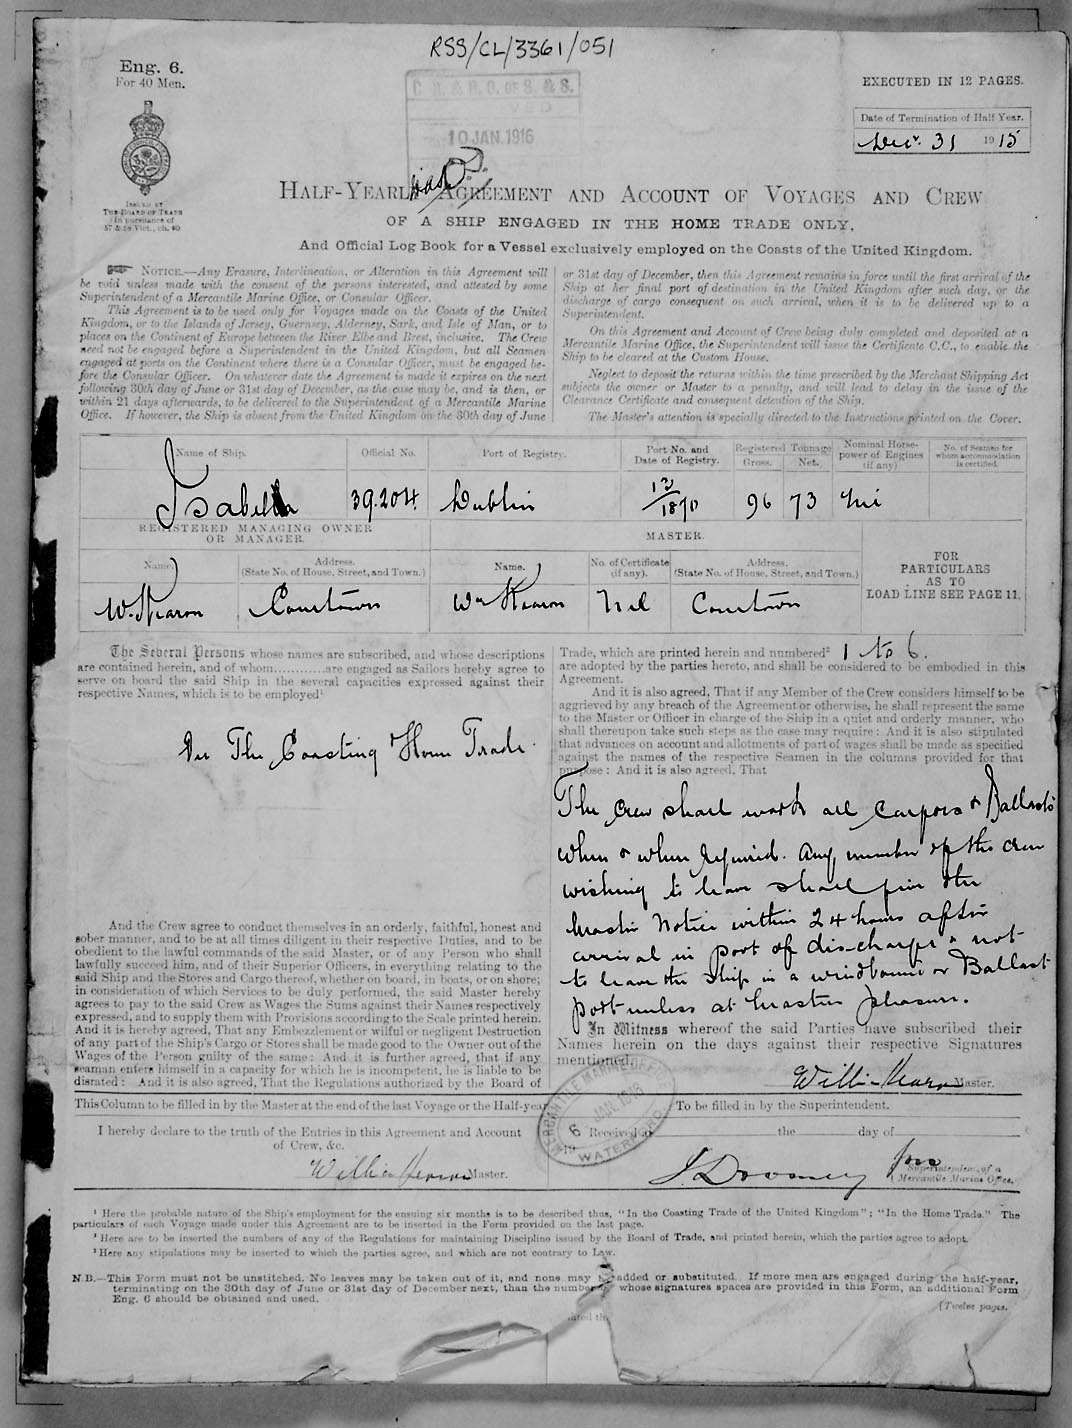 RSS/CL/3361/051
Eng. 6.
For 40 Men.
EXECUTED IN 12 PAGES.
10 JAN. 1916
Date of Termination of Half Year.
Decr. 31 1915
ISSUED BY
THE BOARD OF TRADE
In pursuance of
57 & 58 Vict., ch. 60
HALF-YEARLY AGREEMENT AND ACCOUNT OF VOYAGES AND CREW
OF A SHIP ENGAGED IN THE HOME TRADE ONLY,
And Official Log Book for a Vessel exclusively employed on the Coasts of the United Kingdom.
NOTICE.—Any Erasure, Interlineation, or Alteration in this Agreement will
be void unless made with the consent of the persons interested, and attested by some
Superintendent of a Mercantile Marine Office, or Consular Officer.
This Agreement is to be used only for Voyages made on the Coasts of the United
Kingdom, or to the Islands of Jersey, Guernsey, Alderney, Sark, and Isle of Man, or to
places on the Continent of Europe between the River Elbe and Brest, inclusive. The Crew
need not be engaged before a Superintendent in the United Kingdom, but all Seamen
engaged at ports on the Continent where there is a Consular Officer, must be engaged be-
fore the Consular Officer. On whatever date the Agreement is made it expires on the next
following 30th day of June or 31st day of December, as the case may be, and is then, or
within 21 days afterwards, to be delivered to the Superintendent of a Mercantile Marine
Office. If however, the Ship is absent from the United Kingdom on the 30th day of June
or 31st day of December, then this Agreement remains in force until the first arrival of the
Ship at her final port of destination in the United Kingdom after such day, or the
discharge of cargo consequent on such arrival, when it is to be delivered up to a
Superintendent.
On this Agreement and Account of Crew being duly completed and deposited at a
Mercantile Marine Office, the Superintendent will issue the Certificate C.C., to enable the
Ship to be cleared at the Custom House.
Neglect to deposit the returns within the time prescribed by the Merchant Shipping Act
subjects the owner or Master to a penalty, and will lead to delay in the issue of the
Clearance Certificate and consequent detention of the Ship.
The Master's attention is specially directed to the Instructions printed on the Cover.
Name of Ship. Official No. Port of Registry. Port No. and Date of Registry. Registered Tonnage Gross. Net. Nominal Horse-power of Engines (if any) No. of Seamen for whom accommodation is certified.
Isabella 39.204. Dublin 12/1870 96 73 Nil
REGISTERED MANAGING OWNER
OR MANAGER.
MASTER.
Name. Address. (State No. of House, Street, and Town.) Name. No. of Certificate (if any). Address. (State No. of House, Street, and Town.)
FOR
PARTICULARS
AS TO
LOAD LINE SEE PAGE 11.
W. Kearon Courtown Wm Kearon Nil Courtown
The Several Persons whose names are subscribed, and whose descriptions
are contained herein, and of whom............are engaged as Sailors hereby agree to
serve on board the said Ship in the several capacities expressed against their
respective Names, which is to be employed¹
In The Coasting & Home Trade.
And the Crew agree to conduct themselves in an orderly, faithful, honest and
sober manner, and to be at all times diligent in their respective Duties, and to be
obedient to the lawful commands of the said Master, or of any Person who shall
lawfully succeed him, and of their Superior Officers, in everything relating to the
said Ship and the Stores and Cargo thereof, whether on board, in boats, or on shore;
in consideration of which Services to be duly performed, the said Master hereby
agrees to pay to the said Crew as Wages the Sums against their Names respectively
expressed, and to supply them with Provisions according to the Scale printed herein.
And it is hereby agreed, That any Embezzlement or wilful or negligent Destruction
of any part of the Ship's Cargo or Stores shall be made good to the Owner out of the
Wages of the Person guilty of the same: And it is further agreed, that if any
seaman enters himself in a capacity for which he is incompetent, he is liable to be
disrated: And it is also agreed, That the Regulations authorized by the Board of
Trade, which are printed herein and numbered² 1 to 6.
are adopted by the parties hereto, and shall be considered to be embodied in this
Agreement.
And it is also agreed, That if any Member of the Crew considers himself to be
aggrieved by any breach of the Agreement or otherwise, he shall represent the same
to the Master or Officer in charge of the Ship in a quiet and orderly manner, who
shall thereupon take such steps as the case may require: And it is also stipulated
that advances on account and allotments of part of wages shall be made as specified
against the names of the respective Seamen in the columns provided for that
purpose: And it is also agreed, That
The Crew shall work all Cargoes & Ballasts
when & where required. Any member of the crew
wishing to leave shall give the
Master Notice within 24 hours after
arrival in port of discharge & not
to leave the ship in a windbound or Ballast
port unless at Masters pleasure.
In Witness whereof the said Parties have subscribed their
Names herein on the days against their respective Signatures
mentioned.
William Kearon Master.
This Column to be filled in by the Master at the end of the last Voyage or the Half-year
I hereby declare to the truth of the Entries in this Agreement and Account
of Crew, &c.
William Kearon Master.
To be filled in by the Superintendent.
MERCANTILE MARINE OFFICE
6 JAN 1916
WATERFORD
Received at the day of
19
J. Dooney pro
Superintendent of a
Mercantile Marine Office.
¹ Here the probable nature of the Ship's employment for the ensuing six months is to be described thus, "In the Coasting Trade of the United Kingdom"; "In the Home Trade." The
particulars of each Voyage made under this Agreement are to be inserted in the Form provided on the last page.
² Here are to be inserted the numbers of any of the Regulations for maintaining Discipline issued by the Board of Trade, and printed herein, which the parties agree to adopt.
³ Here any stipulations may be inserted to which the parties agree, and which are not contrary to Law.
N.B.—This Form must not be unstitched. No leaves may be taken out of it, and none may be added or substituted. If more men are engaged during the half-year,
terminating on the 30th day of June or 31st day of December next, than the number whose signatures spaces are provided in this Form, an additional Form
Eng. 6 should be obtained and used.
(Twelve pages.